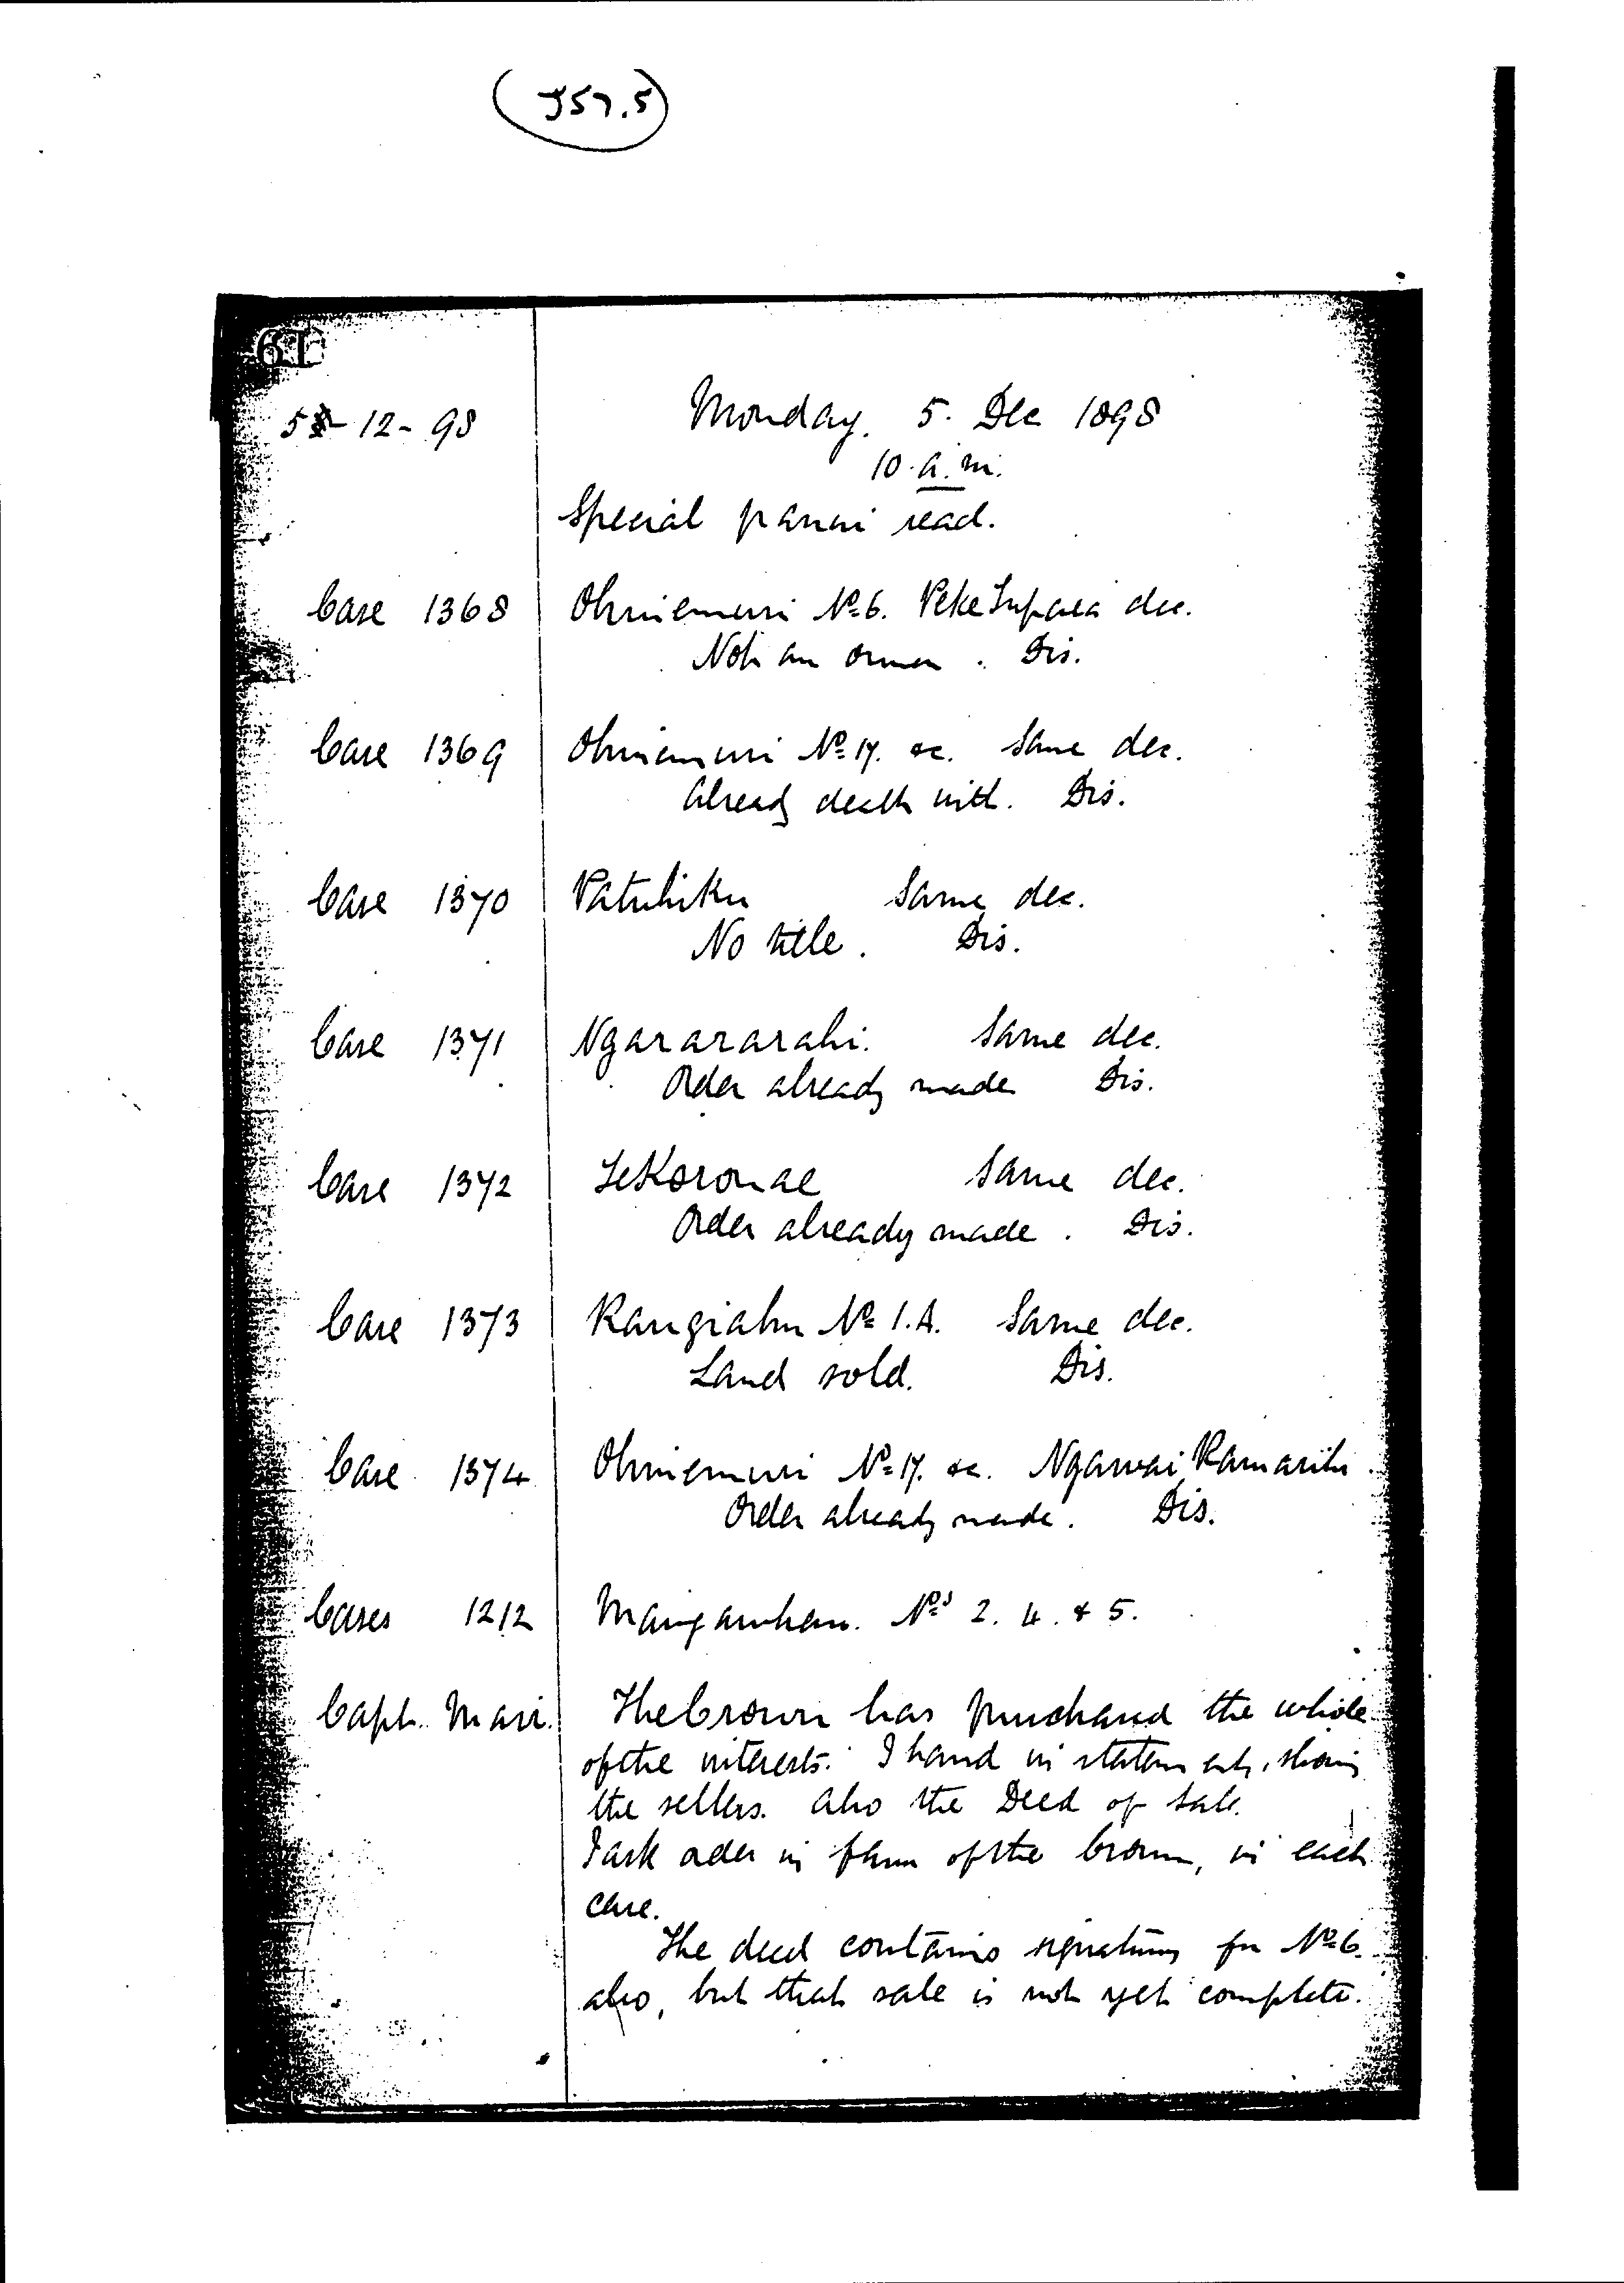 (J57.5)
61
5-12-98 Monday. 5. Dec 1898
10. a.m.
Special panui read.
Case 1368 Ohinemuri No 6. Peke Tupaea dec.
Not an owner. Dis.
Case 1369 Ohinemuri No 17. &c. Same dec.
Already dealt with. Dis.
Case 1370 Patuhiku Same dec.
No title. Dis.
Case 1371 Ngararahi. Same dec.
Order already made Dis.
Case 1372 Te Koronae Same dec.
Order already made. Dis.
Case 1373 Rangiahu No 1.A. Same dec.
Land sold. Dis.
Case 1374 Ohinemuri No 17. &c. Ngawai Kamariki.
Order already made. Dis.
Cases 1212 Nos 2. 4. & 5.
Capt. Mair. The Crown has purchased the whole
of the interests. I hand in statement, showing
the sellers. Also the Deed of Sale.
I ask order in favor of the Crown, in each
case.
The deed contains signatures for No 6.
also, but that sale is not yet complete.